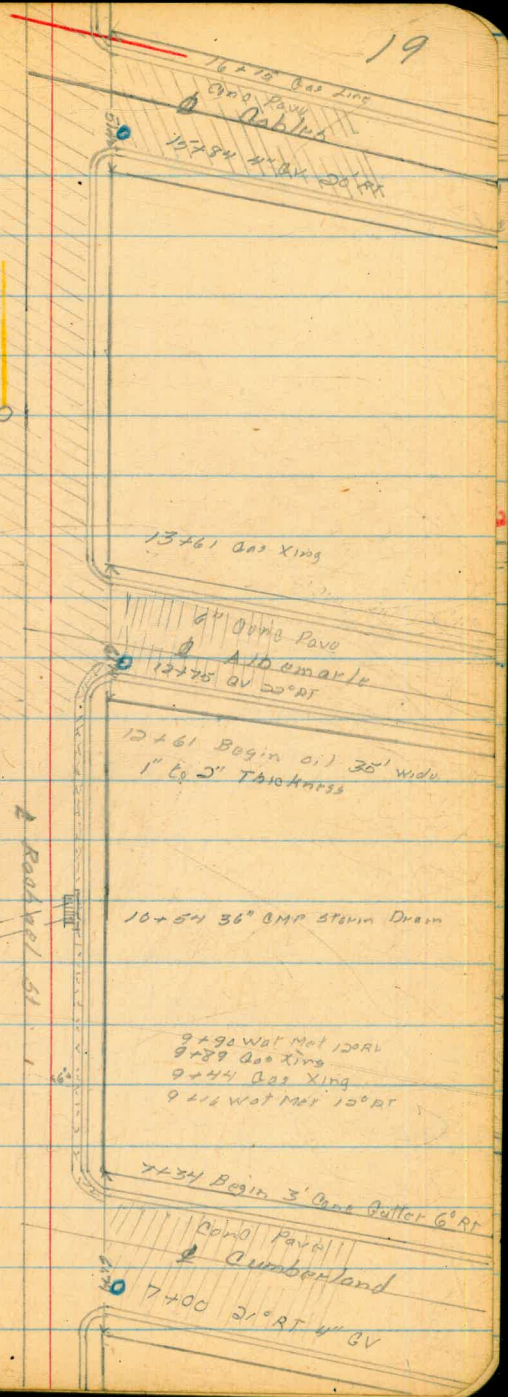 19
16+75 Gas Line
Conc Pave
15+84 4" GV 20' RT
13+61 Gas Xing
6" Conc Pave
Albemarle
12+75 GV 22° RT
12+61 Begin oil 35' wide
1" to 2" Thickness
10+54 36" CMP Storm Drain
9+90 Wat Met 12° Rt
9+89 Gas Xing
9+44 Gas Xing
9+16 Wat Met 12° RT
6"
7+34 Begin 3' Conc Gutter 6° Rt
Conc Pave
Cumberland
7+00 21° RT 4" GV
St.